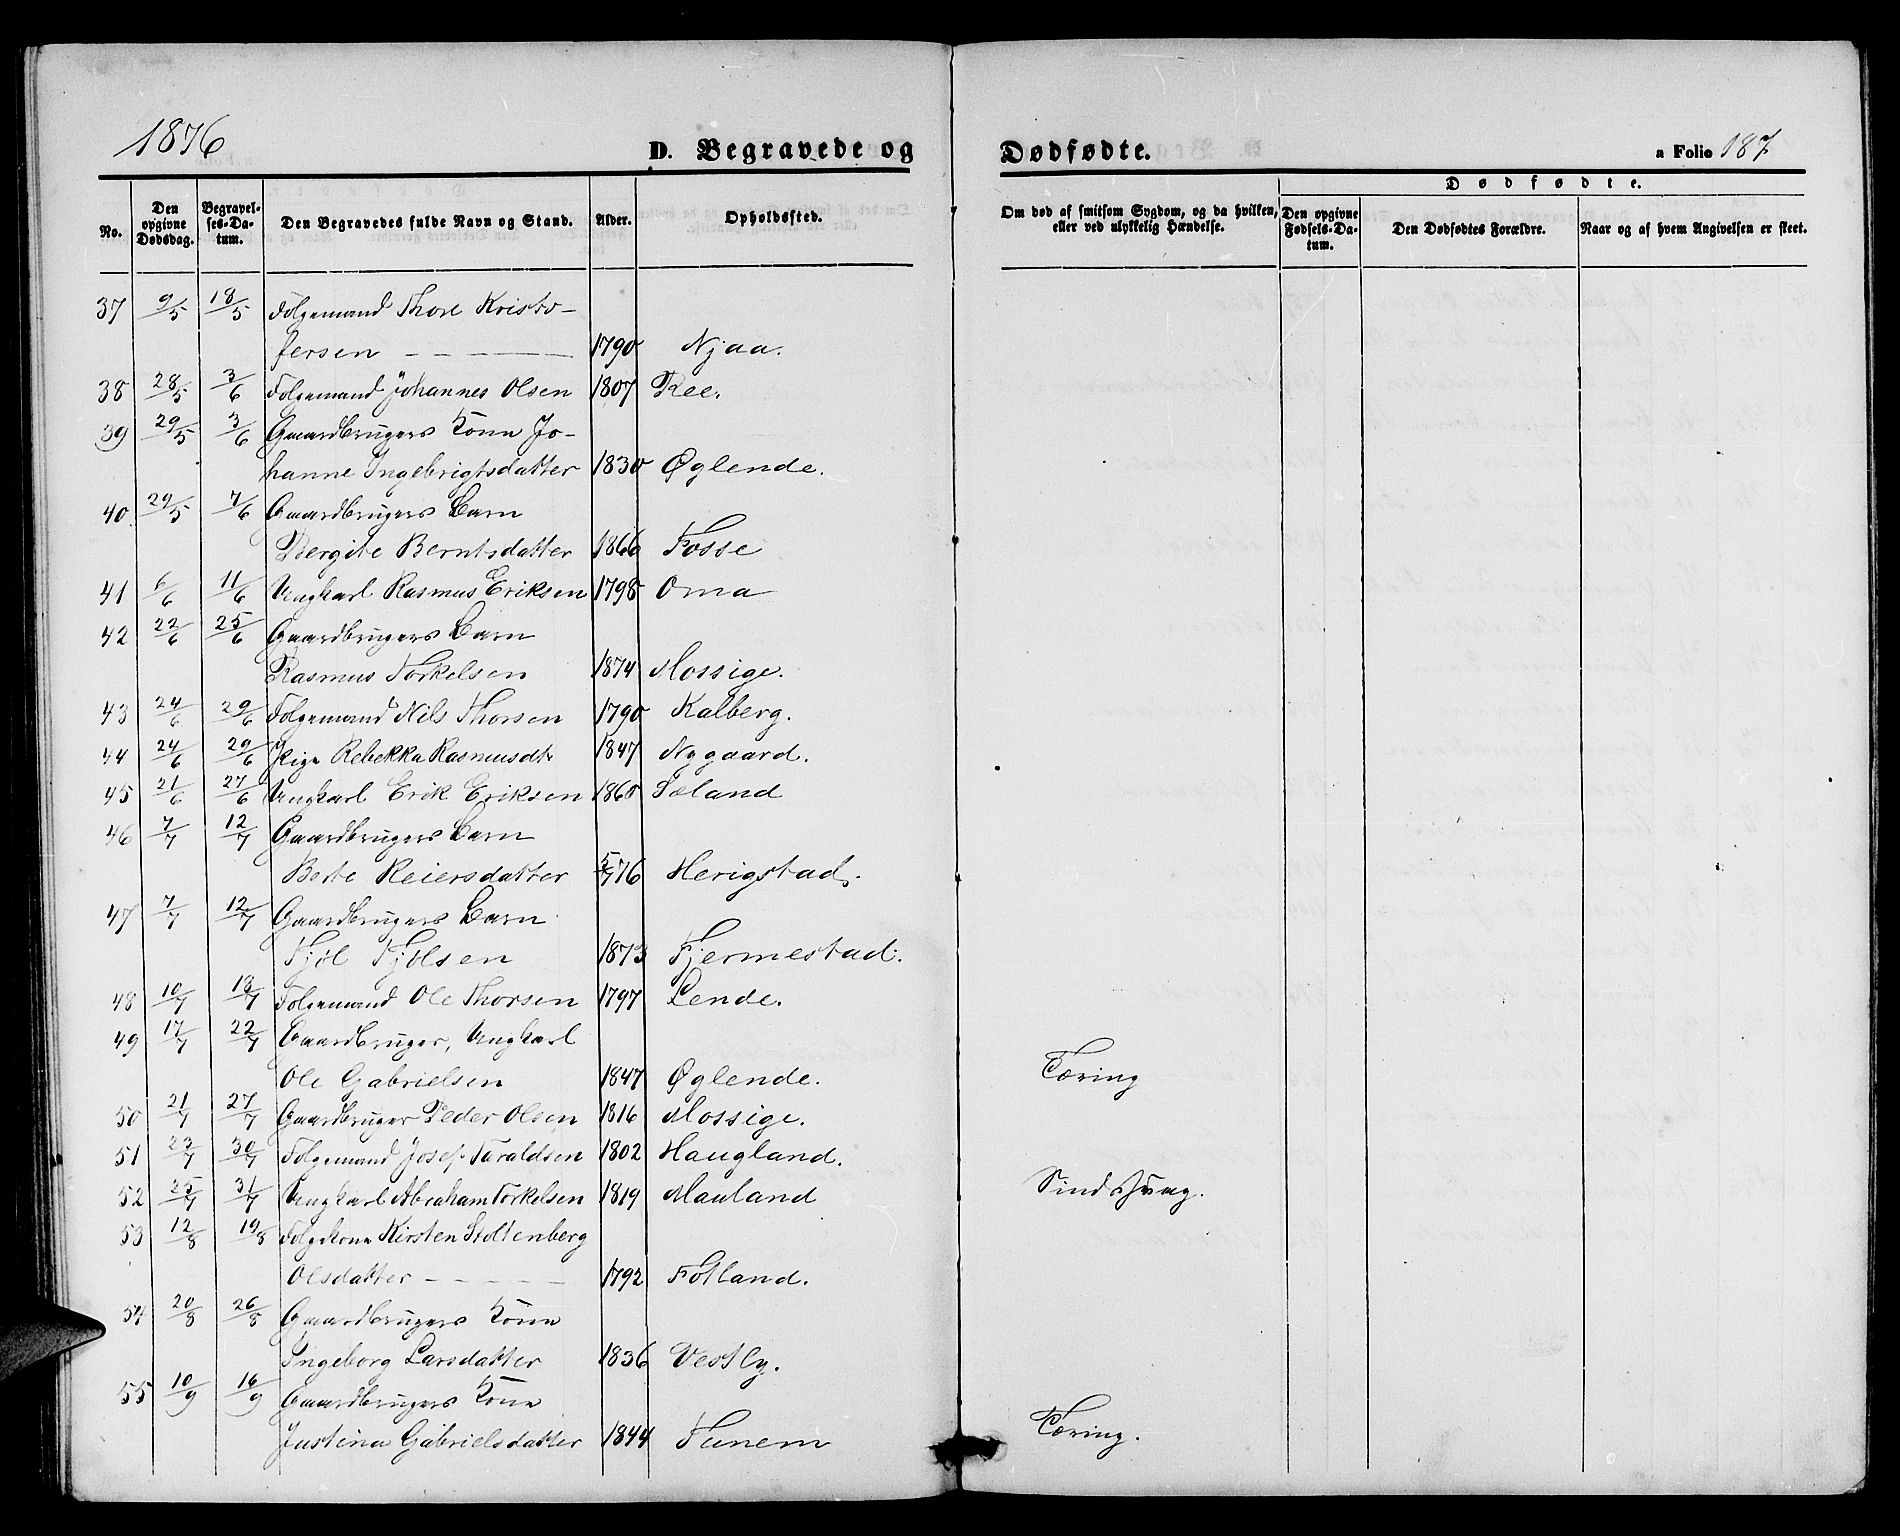 1876
D. Begravede og
Dødfødte.
a Folio 187
No.
Den opgivne Dødsdag.
Begravelses-Datum.
Den Begravedes fulde Navn og Stand.
Alder.
Opholdssted.
Om død af smitsom Sygdom, og da hvilken, eller ved ulykkelig Hændelse.
Dødfødte.
Den opgivne Fødsels-Datum.
Den Dødfødtes Forældre.
Naar og af hvem Angivelsen er skeet.
37 9/5 18/5 Folgemand Thore Kristo-
fersen - - - - 1790 Njaa.
38 28/5 3/6 Folgemand Johannes Olsen 1807 Ree.
39 29/5 3/6 Gaardbrugers Kone Jo-
hanne Ingebrigtsdatter 1830 Øglende.
40 29/5 7/6 Gaardbrugers Barn
Bergite Berntsdatter 1866 Fosse
41 6/6 11/6 Ungkarl Rasmus Eriksen 1798 Oma
42 22/6 25/6 Gaardbrugers Barn
Rasmus Torkelsen 1874 Mossige.
43 24/6 29/6 Folgemand Nils Thorsen 1790 Kalberg.
44 24/6 29/6 Pige Rebekka Rasmusdt. 1847 Nygaard.
45 21/6 27/6 Ungkarl Erik Eriksen 1860 Sæland
46 7/7 12/7 Gaardbrugers Barn
Berte Reiersdatter 5/7 76 Herigstad.
47 7/7 12/7 Gaardbrugers Barn
Fjøl Fjølsen 1873 Fjermestad.
48 10/7 18/7 Folgemand Ole Thorsen 1797 Lende.
49 17/7 22/7 Gaardbruger, Ungkarl
Ole Gabrielsen 1847 Øglende. Tæring
50 21/7 27/7 Gaardbruger Peder Olsen 1816 Mossige.
51 23/7 30/7 Folgemand Josef Taraldsen 1802 Haugland.
52 25/7 31/7 Ungkarl Abraham Torkelsen 1819 Mauland Sindssvag.
53 12/8 19/8 Folgekone Kirsten Stoltenberg
Olsdatter - - - - 1792 Fotland.
54 20/8 26/8 Gaardbrugers Kone
Ingeborg Larsdatter 1836 Vestly.
55 10/9 16/9 Gaardbrugers Kone
Justina Gabrielsdatter 1844 Tunem Tæring.